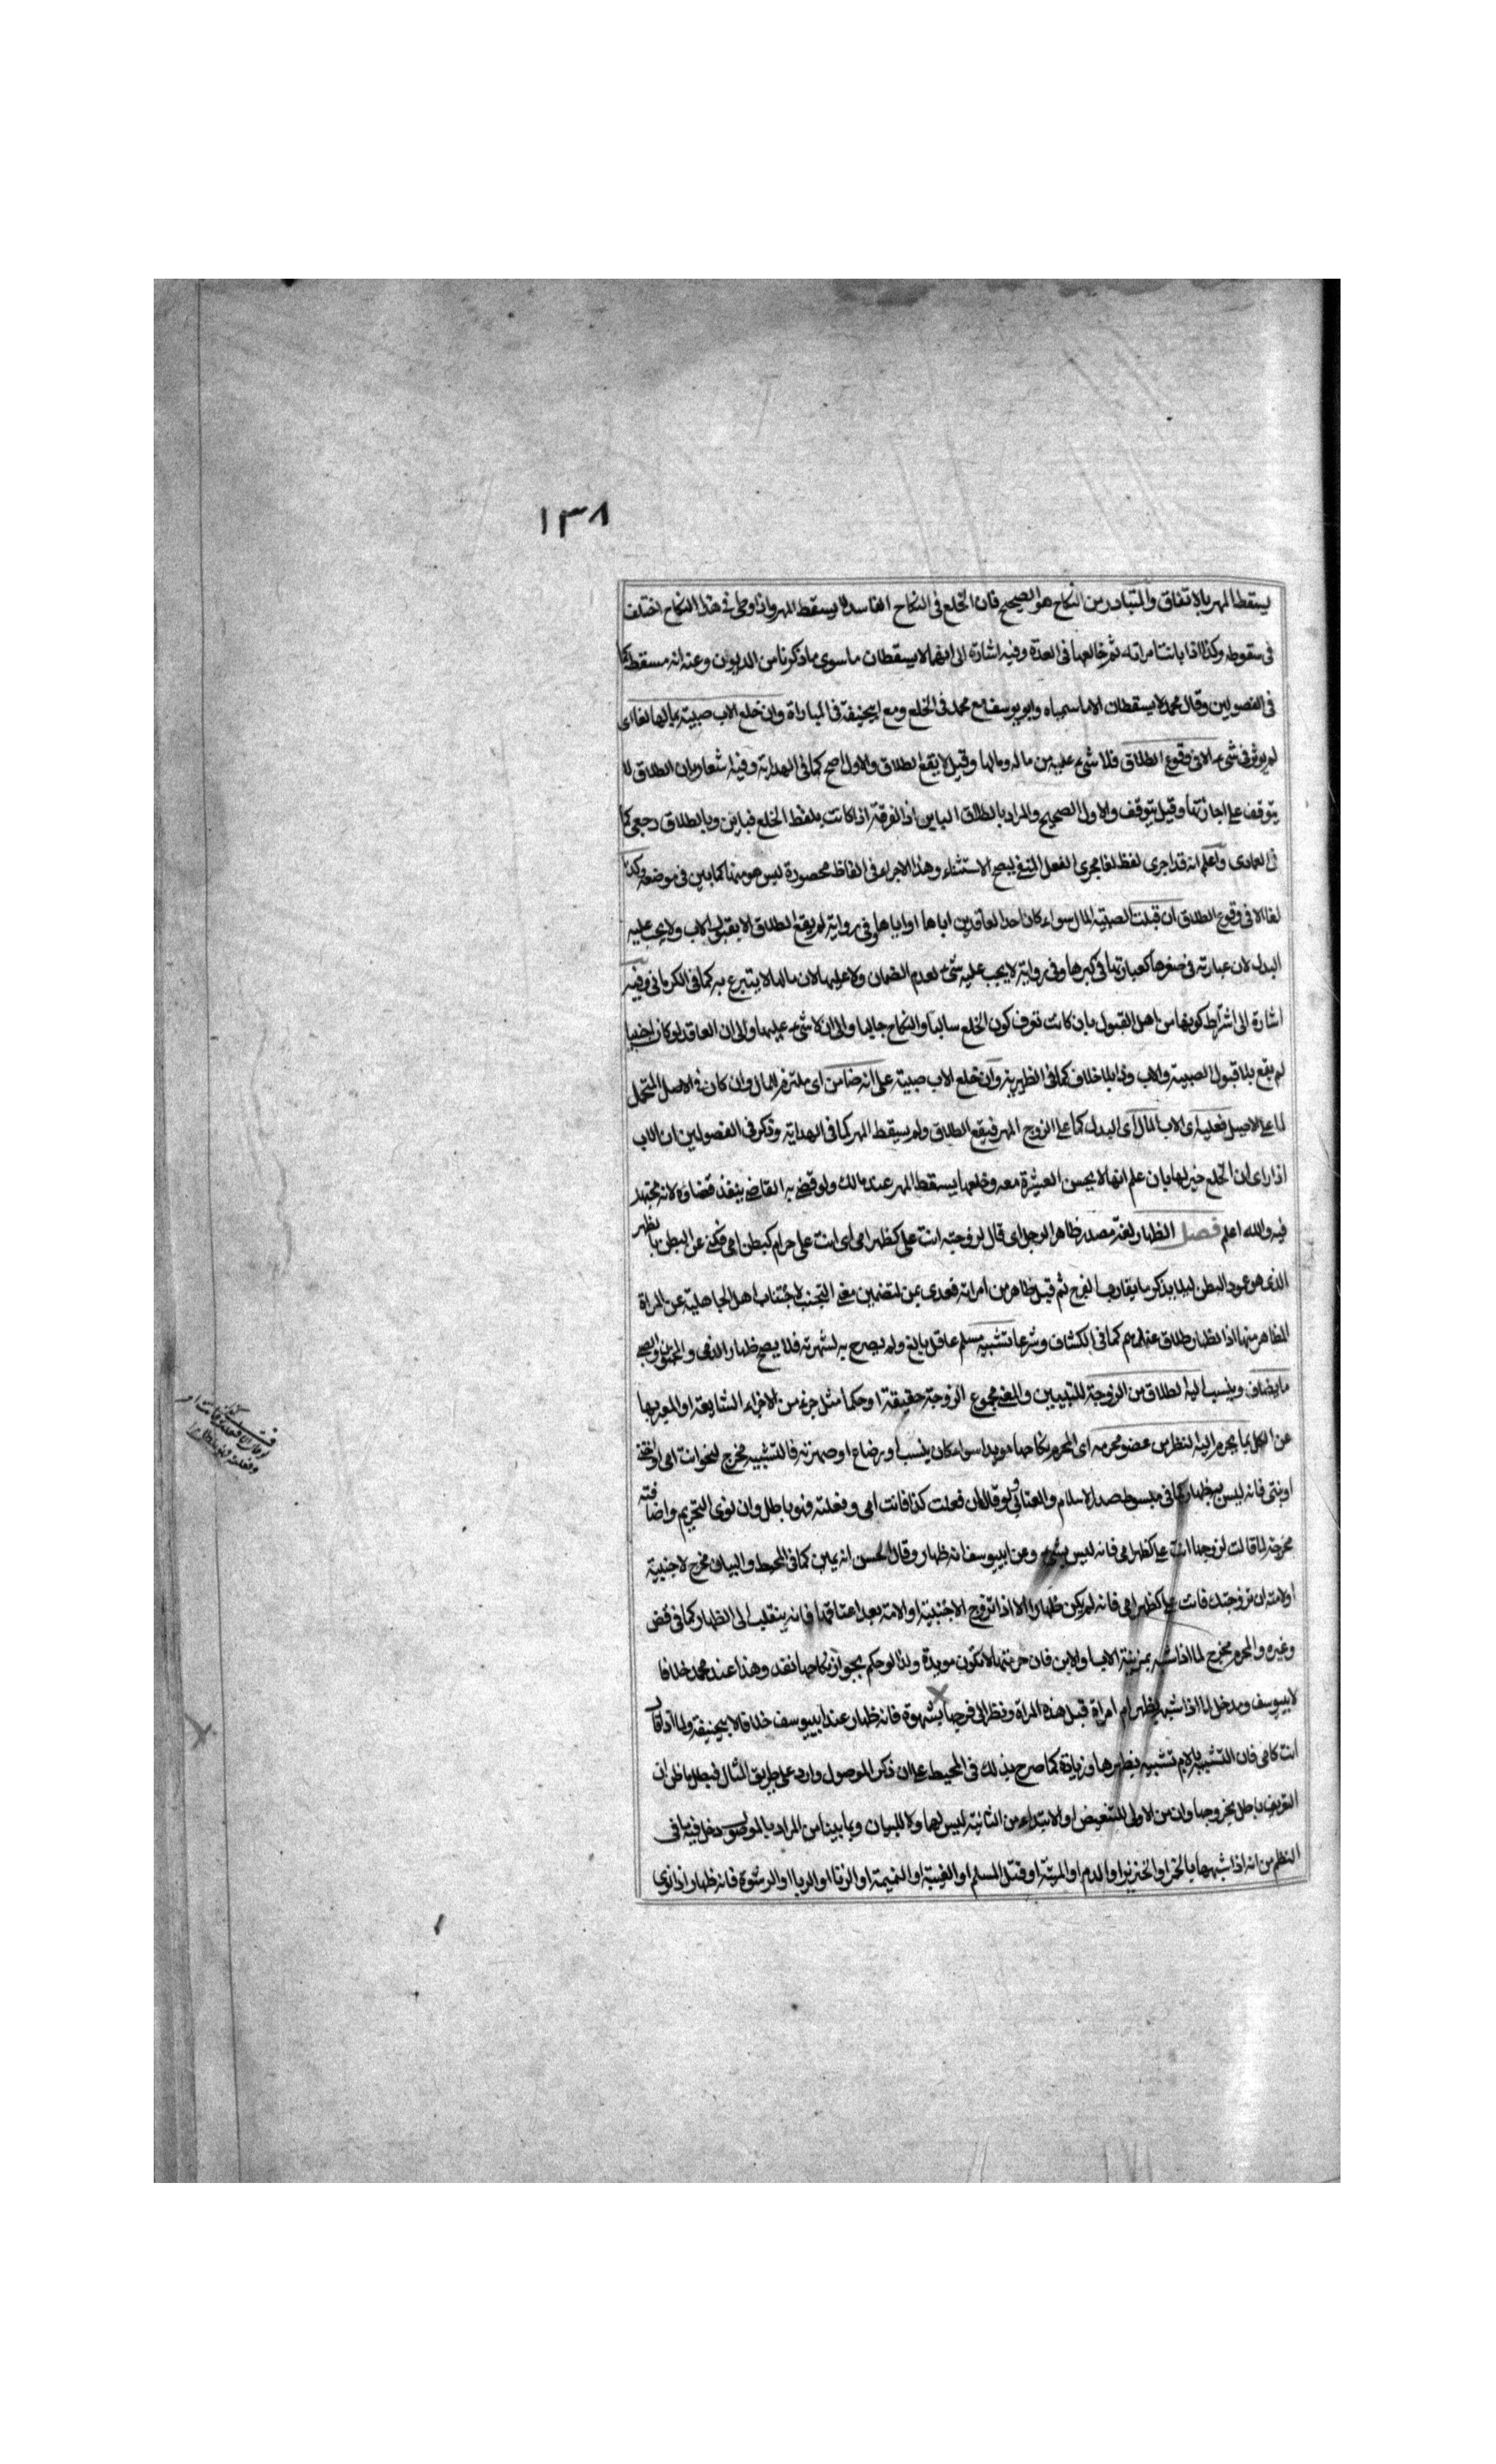 ١٣٨
يسقط المهر بالاتفاق والمتبادر من النكاح هو الصحيح فان الخلع فى النكاح الفاسد لا يسقط المهر واذا وطى فى هذا النكاح اختلف
فى سقوطه وكذا اذا بانت امراته ثم خالعها فى العدة وفيه اشارة الى انهما لا يسقطان ما سوى ما ذكرنا من الديون وعنه انه مسقط كما
فى الفصولين وقال محمد لا يسقطان الا ما سمياه وابو يوسف مع محمد فى الخلع ومع ابيحنيفة فى المباراة وان خلع الاب صبية بمالها لغا اى
لم يوثر فى شىء الا فى وقوع الطلاق فلا شىء عليه من ماله ومالها وقيل لا يقع الطلاق والاول اصح كما فى الهداية وفيه اشعار بان الطلاق لا
يتوقف على اجازتها وقيل يتوقف والاول الصحيح والمراد بالطلاق الباين اذ الفرقة اذا كانت بلفظ الخلع فباين وبالطلاق رجعى كما
فى العمادى واعلم انه قد اجرى لفظ لغا مجرى الفعل المنفى ليصح الاستثناء وهذا الاجراء فى الفاظ محصورة ليس هو منها كما بين فى موضعه وكذا
لغا الا فى وقوع الطلاق ان قبلت الصبية المال سواء كان احد العاقدين اباها او اياها وفى رواية لم يقع الطلاق الا بقبول الاب ولا يجب عليه
البدل لان عبارته فى صغرها كعبارتها فى كبرها وفى رواية لا يجب عليه شىء لعدم الضمان ولا عليها لان مالها لا يتبرع به كما فى الكرمانى وفيه
اشارة الى اشتراط كونها من اهل القبول بان كانت تعرف كون الخلع سالبا والنكاح جالبا والى ان لا شىء عليها والى ان العاقد لو كان اجنبيا
لم يقع بلا قبول الصبية والاب وذا بلا خلاف كما فى الظهيرية وان خلع الاب صبية على انه ضامن اى ملتزم المال وان كان فى الاصل المتحمل
لما على الاصيل فعليه اى الاب المال اى البدل كما على الزوج المهر فيقع الطلاق ولم يسقط المهر كما فى الهداية وذكر فى الفصولين ان الاب
اذا راى ان الخلع خير لها بان علم انها لا يحسن العشرة معه وخلعها يسقط المهر عند مالك ولو قضى به القاضى ينفذ قضاوه لانه مجتهد
فيه والله اعلم فصل الظهار لغة مصدر ظاهر الرجل اى قال لزوجته انت على كظهر امى اى انت على حرام كبطن امى فكنى عن البطن بالظهر
الذى هو عمود البطن ليلا يذكر ما يقارب الفرج ثم قيل ظاهر من امراته فعدى بمن لتضمين معنى التجنب لاجتناب اهل الجاهلية عن المراة
المظاهر منها اذ الظهار طلاق عندهم كما فى الكشاف وشرعا تشبيه مسلم عاقل بالغ ولم يصرح به لشهرته فلا يصح ظهار الذمى والمجنون والصبى
ما يضاف وينسب اليه الطلاق من الزوجة للتبيين والمعنى مجموع الزوجة حقيقة او حكما مثل جزء من الاجزاء الشايعة او المعبر بها
عن الكل بما يحرم اليه النظر من عضو محرمه اى المحرم نكاحها موبدا سواء كان بنسب او رضاع او صهرية فالتشبيه مخرج لنحو انت امى او اختى
او بنتى فانه ليس بظهار كما فى مبسوط صدر الاسلام والعتابى ولو قال ان فعلت كذا فانت امى وفعلته فهو باطل وان نوى التحريم واضافته
مخرجة لما قالت لزوجها انت على كظهر امى فانه ليس بشىء وعن ابييوسف انه ظهار وقال الحسن انه يمين كما فى المحيط والبيان مخرج لاجنبية
او لامته ان تزوجتك فانت على كظهر امى فانه لم يكن ظهارا الا اذا تزوج الاجنبية او الامة بعد اعتاقها فانه ينقلب الى الظهار كما فى قض
وغيره والمحرم مخرج لما اذا شبه بمزنية الاب او الابن فان حرمتها لا تكون موبدة ولذا لو حكم بجواز نكاحها نفذ وهذا عند محمد خلافا
لابييوسف ومدخل لما اذا شبه بظهر ام امراة قبل هذه المراة ونظر الى فرجها بشهوة فانه ظهار عند ابييوسف خلافا لابيحنيفة ولما اذا قال
انت كامى فان التشبيه بالام تشبيه بظهرها وزيادة كما صرح بذلك فى المحيط على ان ذكر الموصول وارد على طريق المثال فبطل ما ظن ان
التعريف باطل بخروجها وان من الاولى للتبعيض او الابتداء من الثانية ليس لها ولا للبيان وبما بينا من المراد بالموصول دخل فيه ما فى
النظم من انه اذا شبهها بالخمر او الخنزير او الدم او الميتة او قتل المسلم او الغيبة او النميمة او الزنا او الربا او الرشوة فانه ظهار اذا نوى